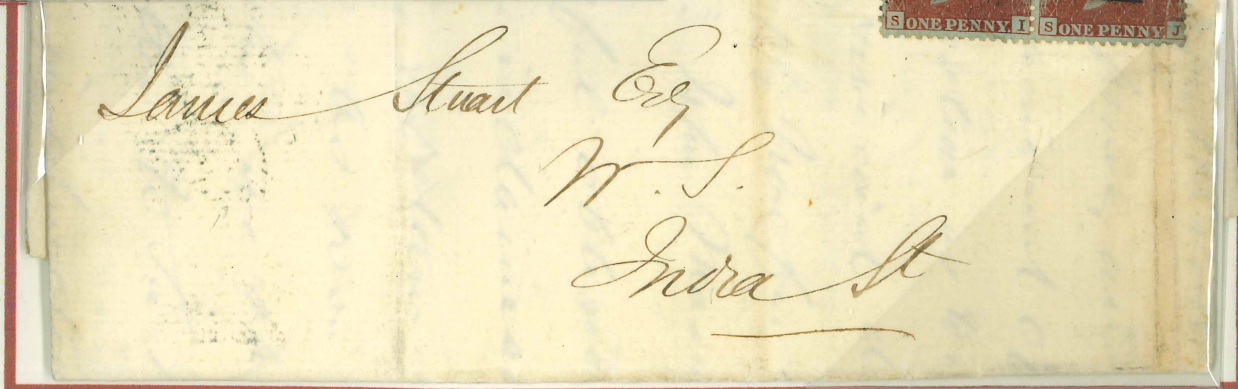 S ONE PENNY. I S ONE PENNY J
James Stuart Esq
W. S.
India St